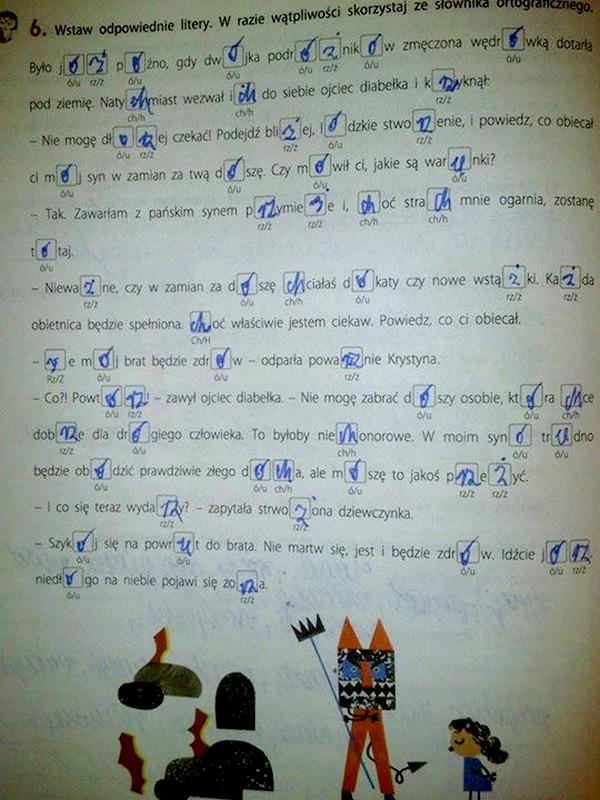 6. Wstaw odpowiednie litery. W razie wątpliwości skorzystaj ze słownika ortograficznego.
Było jóż późno, gdy dwójka podróżników zmęczona wędrówką dotarła
ó/u rz/ż ó/u ó/u ó/u rz/ż ó/u ó/u
pod ziemię. Natychmiast wezwał ich do siebie ojciec diabełka i krzyknął:
ch/h ch/h rz/ż
– Nie mogę dłóżej czekać! Podejdź bliżej, lódzkie stworzenie, i powiedz, co obiecał
ó/u rz/ż rz/ż ó/u rz/ż
ci mój syn w zamian za twą dószę. Czy mówił ci, jakie są warunki?
ó/u ó/u ó/u ó/u
– Tak. Zawarłam z pańskim synem przymieże i, choć strach mnie ogarnia, zostanę
rz/ż rz/ż ch/h ch/h
tótaj.
ó/u
– Nieważne, czy w zamian za dószę chciałaś dókaty czy nowe wstążki. Każda
rz/ż ó/u ch/h ó/u rz/ż rz/ż
obietnica będzie spełniona. choć właściwie jestem ciekaw. Powiedz, co ci obiecał.
Ch/H
– że mój brat będzie zdrów – odparła poważnie Krystyna.
Rz/Ż ó/u ó/u rz/ż
– Co?! Powtórz! – zawył ojciec diabełka. – Nie mogę zabrać dószy osobie, która chce
ó/u rz/ż ó/u ó/u ch/h
dobrze dla drógiego człowieka. To byłoby niechonorowe. W moim synó trudno
rz/ż ó/u ch/h ó/u ó/u
będzie obódzić prawdziwie złego dócha, ale mószę to jakoś przeżyć.
ó/u ó/u ch/h ó/u rz/ż rz/ż
– I co się teraz wydarzy? – zapytała stwożona dziewczynka.
rz/ż rz/ż
– Szykój się na powrut do brata. Nie martw się, jest i będzie zdrów. Idźcie jórz,
ó/u ó/u ó/u ó/u rz/ż
niedłógo na niebie pojawi się zorza.
ó/u rz/ż